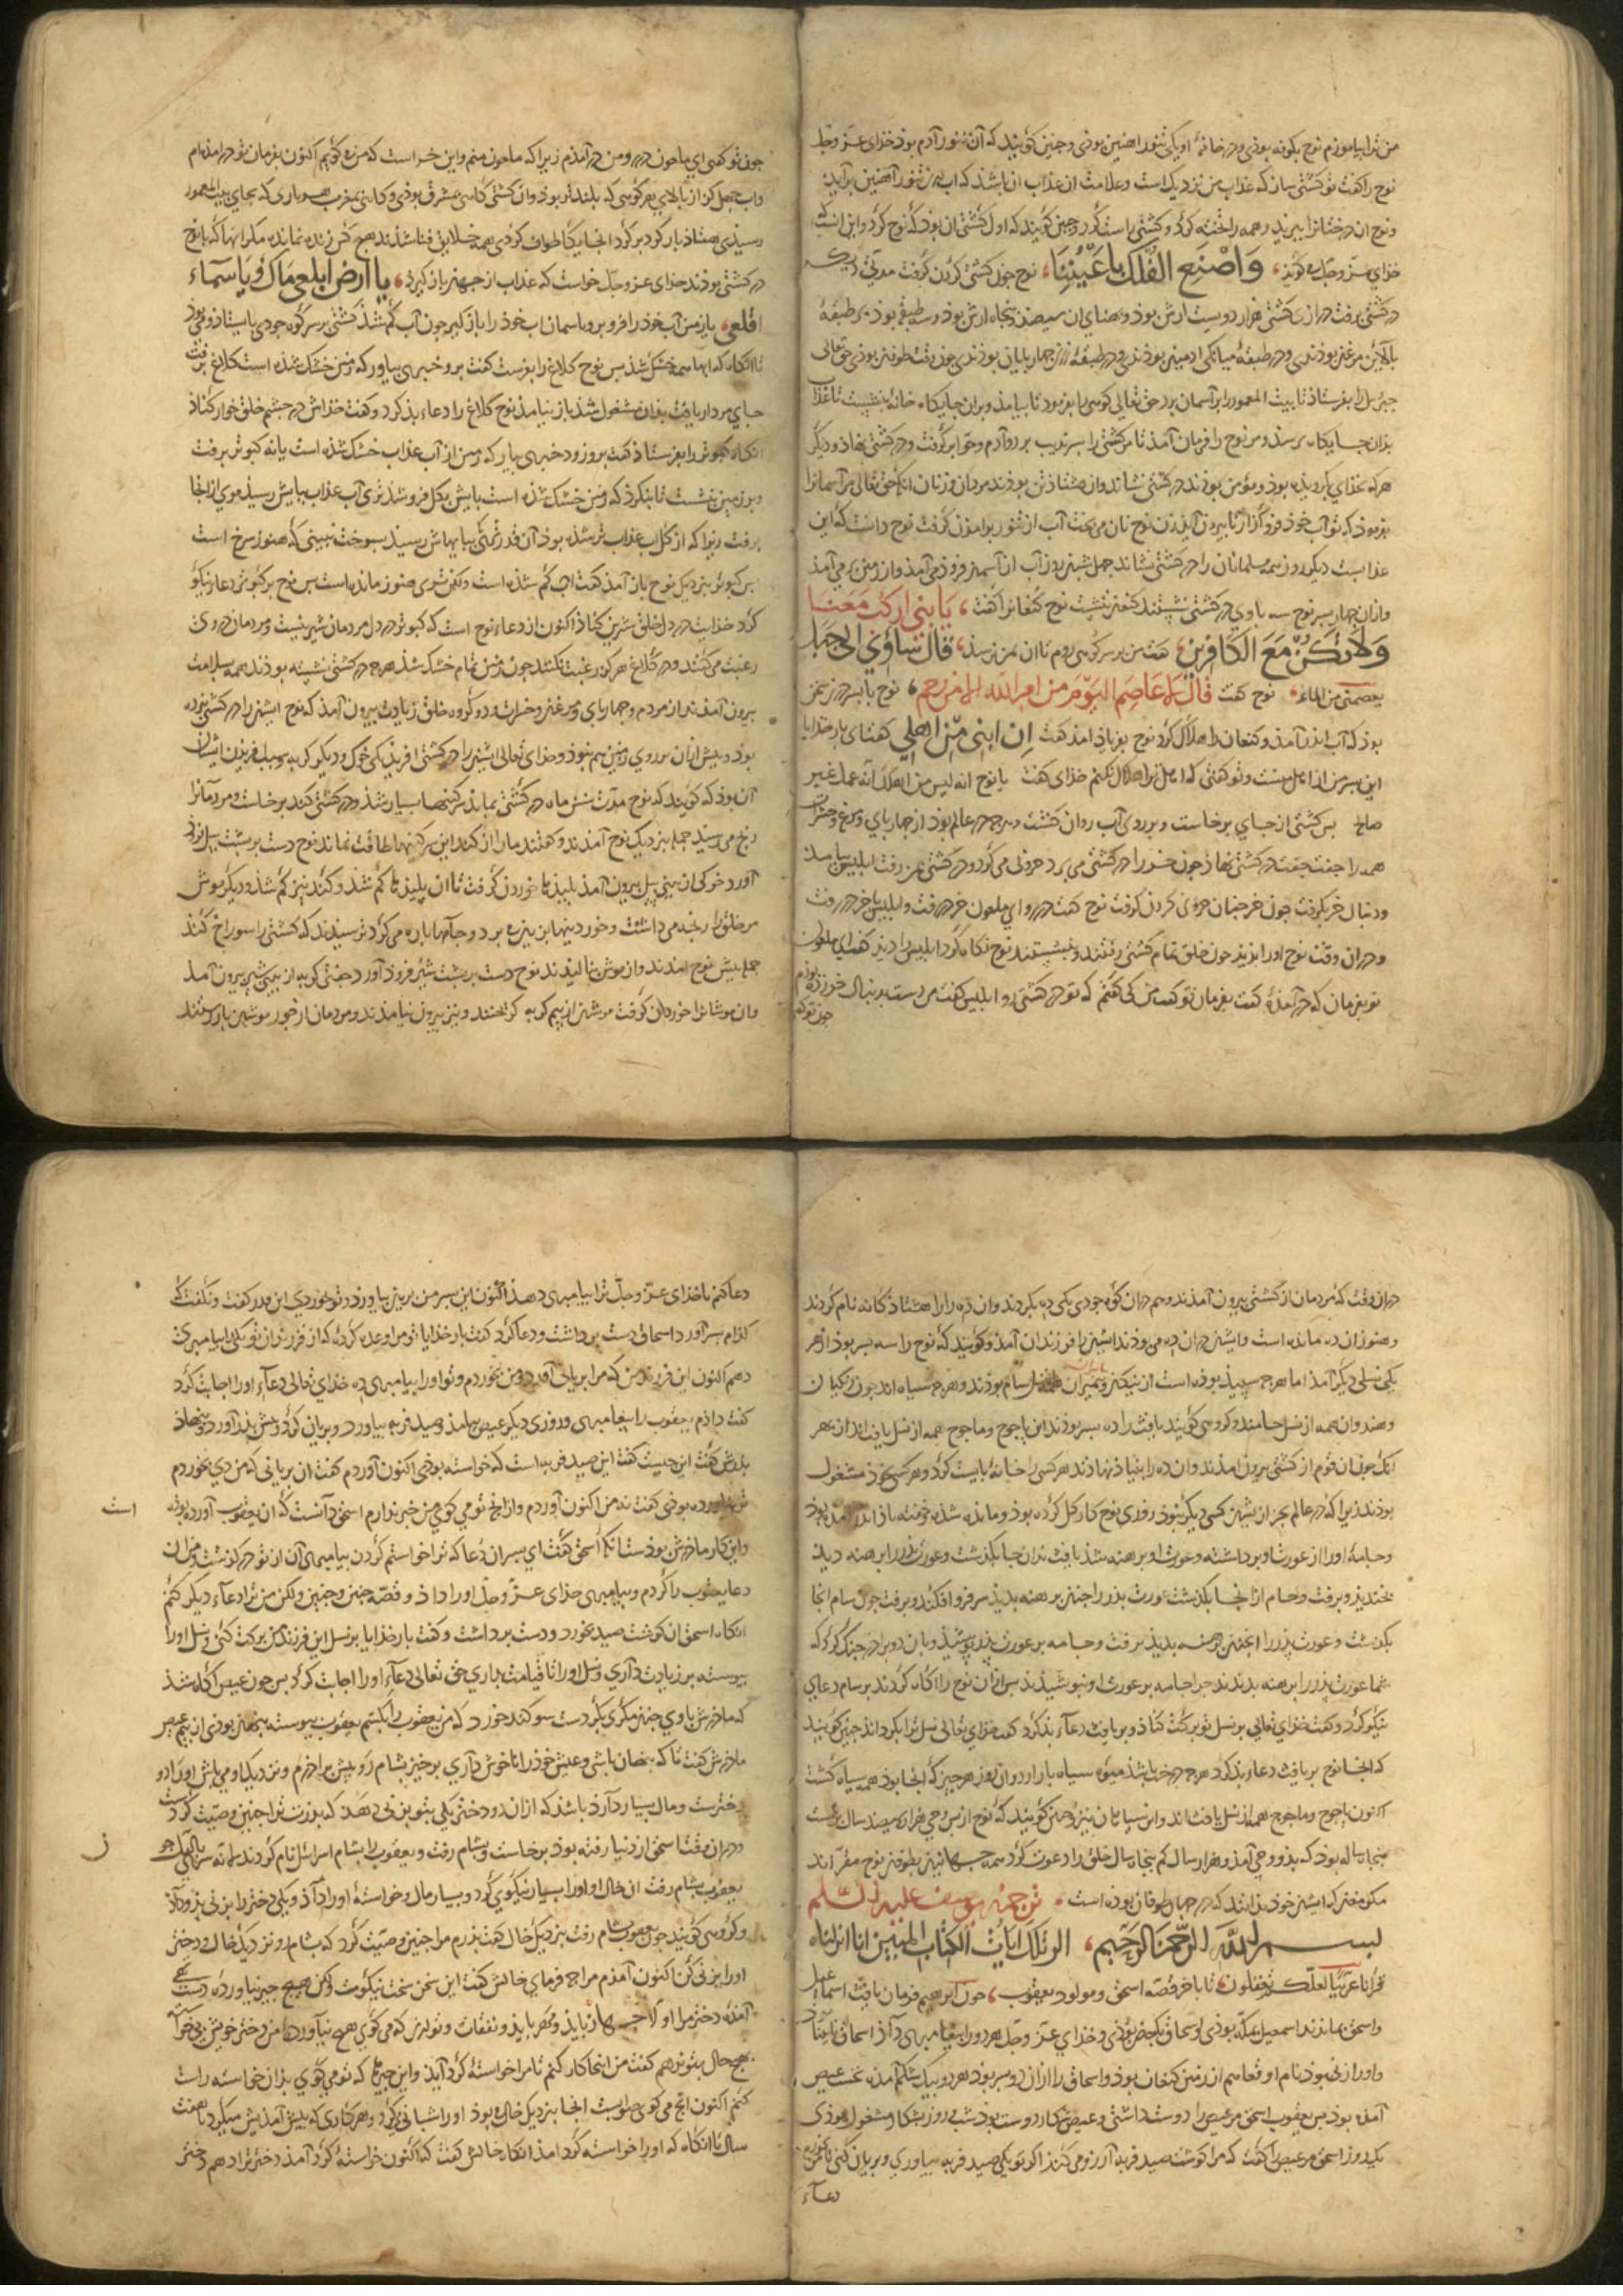 من ترا بیاموزم نوح بکونه بوذی و در خانهٔ او یکی تنور اهنین بوذی و جنین کویند که آن تنور آدم بوذ خذای عز و جل
نوح را کفت تو کشتی ساز که عذاب من نزدیک است و علامت ان عذاب ان باشذ که اب از تنور آهنین برآید
و نوح ان درختانرا ببرید و همه را تخته کرد و کشتی راست کرد و جنین کویند که اول کشتی ان بوذ که نوح کرد و این انست که
خذای عز و جل می کوید وَاصْنَعِ الفُلْكَ بِاَعْيُنِنَا نوح جون کشتی کردن کرفت مدتی دیری
در کشتی برفت درازی کشتی هزار و دویست ارش بوذ و بهنای ان سیصذ و بنجاه ارش بوذ و سه طبقه بوذ بر طبقهٔ
بالایین مرغان بوذندی و در طبقهٔ میانکی ادمیان بوذندی و در طبقهٔ زیرین جهاربایان بوذندی جون وقت طوفان بوذ حق تعالی
جبریل را بفرستاذ تا بیت المعمور را بر آسمان برد حق تعالی کوهی را بفرموذ تا بیامذ و بران جایکاه خانه بنشست تا عذاب
بذان جایکاه نرسذ و مر نوح را فرمان آمذ تا مر کشتی را سرندیب برد و آدم و حوا برکرفت و در کشتی نهاذ و دیکر
هرکه بخذای کرویذه بوذ و مؤمن بوذند در کشتی نشاند و ان هشتاذ تن بوذند مردان و زنان انکاه حق تعالی مر آسمانرا
بفرموذ که تو آب خوذ فرو کذار تا بیرون آید زن نوح نان می بخت آب از تنور برامذن کرفت نوح دانست که این
عذابست دیکر روز همه مسلمانان را در کشتی نشاند جهل شبانروز آب از آسمان فروذ می آمذ و از زمین برمی آمذ
و ازان جهار بسر نوح سه با وی در کشتی نشستند کنعان ننشست نوح کنعانرا کفت يَا بُنَىَّ ارْكَبْ مَعَنَا
وَلَا تَكُنْ مَعَ الْكَافِرِينَ کفت من بر سر کوهی روم تا ان بمن نرسذ قَالَ سَآوِي اِلَى جَبَلٍ
يعصمنى من الماء نوح کفت قَالَ لَا عَاصِمَ اليَوْمَ مِنْ امرِ اللهِ اِلَّا مَنْ رَحِمَ نوح با بسر در سخن
بوذ که آب اندر آمذ و کنعان را هلاک کرد نوح بفریاذ امذ کفت اِنَّ ابْنِى مِنْ اَهْلِي کفت ای بارخذایا
این بسر من از اهل منست و تو کفتی که اهل ترا هلاک نکنم خذای کفت یا نوح انه لیس من اهلک انه عمل غیر
صالح بس کشتی از جای برخاست و بر روی آب روان کشت و هرجه در عالم بوذ از جهاربای و مرغ و حشرات
همه را جفت جفت در کشتی نهاذ جون خر را در کشتی می برد حرونی می کرد و در کشتی نمی رفت ابلیس بیامذ
و دنبال خر بکرفت جون خر جنان حرونی کردن کرفت نوح کفت در رو ای ملعون خر در رفت و ابلیس با خر در رفت
و دران وقت نوح اورا ندید جون خلق تمام کشتی رفتند و بنشستند نوح نکاه کرد ابلیس را دید کفت ای ملعون
تو بفرمان که در آمذهٔ کفت بفرمان تو کفت من کی کفتم که تو در کشتی رو ابلیس کفت من دست بدنبال خر زده بوذم
جون تو کفتی
جون تو کفتی ای ملعون در رو من در آمذم زیرا که ملعون منم و این خر است که من می کویم اکنون بفرمان تو در امذه ام
و اب جهل کز از بالای هر کوهی که بلندتر بوذ و ان کشتی کاهی بمشرق بوذی و کاهی بمغرب هر باری که بجای بیت المعمور
رسیذی هفتاذ بار کرد بر کرد انجایکاه طواف کردی همه خلایق فنا شذند هیج کس زنده نماند مکر انها که با نوح
در کشتی بوذند خذای عز و جل خواست که عذاب از جهان باز کیرد يا ارض ابلعى ماءك ويا سماء
اقلعى یا زمین آب خوذ را فرو بر و یا اسمان اب خوذ را باز کیر جون آب کم شذ کشتی بر سر کوه جودی بایستاذ و می بوذ
تا انکاه که ابها همه خشک شذ بس نوح کلاغ را بفرستاذ کفت برو خبری بیاور که زمین خشک شذه است کلاغ برفت
جای مردار یافت بذان مشغول شذ باز نیامذ نوح کلاغ را دعاء بذ کرد و کفت خذاش در جشم خلق خوار کناذ
انکاه کبوتر را بفرستاذ کفت برو زود خبری بیار که زمین از آب عذاب خشک شذه است یا نه کبوتر برفت
و بر زمین نشست تا بنکرذ که زمین خشک شذه است بایش بکل فرو شذ تری آب عذاب ببایش رسیذ موی ازانجا
برفت زیرا که از کل اب عذاب تر شذه بوذ آن قدر تری که ببایهاش رسیذ بسوخت نبینی که هنوز سرخ است
بس کبوتر بنزدیک نوح باز آمذ کفت اب کم شذه است ولکن تری هنوز مانده است بس نوح بر کبوتر دعاء نیکو
کرد خذایت در دل خلق شیرین کناذ اکنون از دعاء نوح است که کبوتر در دل مردمان شیرینست و مردمان در وی
رغبت می کنند و در کلاغ هرکز رغبت نکنند جون زمین تمام خشک شذ هرجه در کشتی نشسته بوذند همه بسلامت
بیرون آمذند از مردم و جهاربای و مرغان و حشرات و دو کروه خلق زیادت بیرون آمذ که نوح ایشان را در کشتی نبرده
بوذ و بیش ازان بر روی زمین هم نبوذ و خذای تعالی ایشان را در کشتی افریذ یکی خوک و دیکر کربه و سبب افریذن ایشان
آن بوذ که کویند که نوح مدت شش ماه در کشتی بماند سرکینها بسیار شذ و در کشتی کند برخاست و مردمانرا
رنج می رسیذ جمله بنزدیک نوح آمذند و کفتند مارا از کند این سرکینها طاقت نماند نوح دست بر بشت بیل فرود
آورد خوکی ان بینی بیل بیرون آمذ بلیذیها خوردن کرفت تا ان بلیذیها کم شذ و کند نیز کم شذ و دیکر موش
مر خلق را رنجه می داشت و خوردنیها بزیان می برد و جامها باره می کرد ترسیذند که کشتی را سوراخ کند
جمله بیش نوح امذند و از موش نالیذند نوح دست بر بشت شیر فروذ آورد جفتی کربه از بینی شیر بیرون آمذ
و ان موشانرا خوردن کرفت موشان از بیم کربه کریختند و نیز بیرون نیامذند و مردمان از جور موشان باز رستند
دران وقت که مردمان از کشتی بیرون آمذند و هم دران کوه جودی یکی ده بکردند و ان ده را هشتاذکانه نام کردند
و هنوز ان ده مانده است و ایشان دران ده می بوذند ایشان را فرزندان آمذ و کویند که نوح را سه بسر بوذ از هر
یکی نسلی دیکر آمذ اما هرجه سبیذ بوذه است از نیکان و بیغمبران همه از نسل سام بوذند و هرجه سیاه اند جون زنکیان
و هندوان همه از نسل حامند و کروهی کویند یافث را ده بسر بوذند این یاجوج و ماجوج همه از نسل یافث اند از بهر
انک جون ان قوم از کشتی بیرون امذند و ان ده را بنیاذ نهاذند هر کسی را خانهٔ بایست کرد و هر کسی بخوذ مشغول
بوذند زیرا که در عالم بجز از ایشان کسی دیکر نبوذ روزی نوح کار کل کرده بوذ و مانده شذه خفته باذ اندر امذه بوذ
و جامهٔ اورا از عورت او برداشته و عورت او برهنه شذ یافث بدان جا بکذشت و عورت بذر را برهنه دید
بخندید و برفت و حام از انجا بکذشت عورت بذر را جنین برهنه بدید سر فرو افکند و برفت جون سام انجا
بکذشت و عورت بذر را اینجنین برهنه بدید برفت و جامه بر عورت بذر بوشیذ و با ان دو برادر جنک کرد که
شما عورت بذر را برهنه بدیدند جرا جامه بر عورت او نبوشیذند بس ازان نوح را اکاه کردند بر سام دعای
نیکو کرد و کفت خذای تعالی بر نسل تو برکت کناذ و بر یافث دعاء بذ کرد کفت خذای تعالی نسل ترا بکرداناذ جنین کویند
که انجا نوح بر یافث دعاء بذ کرد هرجه درخت باشذ میوه سیاه بار ارد و ان روز هرجیز که انجا بوذ همه سیاه کشت
اکنون یاجوج و ماجوج همه از نسل یافث اند و این سیاهان نیز و جنین کویند که نوح از بس وحی هزار و سیصد سال بزیست
بنجاه ساله بوذ که بذو وحی آمذ و هزار سال کم بنجاه سال خلق را دعوت کرد همه جهانیان بطوفان نوح مقراند
مکر مغان که ایشان خوذ ندانند که در جهان طوفان بوذه است ترجمهٔ یوسف علیه السلم
بسم الله الرحمن الرحیم الر تلك ايات الكتاب المبين انا انزلناه
قرآنا عربيا لعلكم تعقلون تا باخر قصه اسحق و مولود یعقوب جون ابرهیم فرمان یافت اسماعیل
و اسحق بماندند اسمعیل بمکه بوذی و اسحاق بکنعان بوذی و خذای عز و جل هردو را بیغامبری دآذ اسحاق نابینا
و اورا زنی بوذ نام او هم از زمین کنعان بوذ و اسحاق را ازان دو بسر بوذ هردو بیک شکم آمذه نخست عیص
آمذه بوذ بس یعقوب اسحق مر عیص را دوست داشتی و عیص شکار دوست بوذ شب و روز بشکار مشغول بوذی
یک روز اسحق مر عیص را کفت که مرا کوشت صید فربه آرزو می کند اکر تو یکی صید فربه بیاوری و بریان کنی تا بخورم من
دعآء
دعا کنم تا خذای عز و جل ترا بیامبری دهذ اکنون این بسر من بریان بیاورد و تو خوردی این مادر کفت و نکفت که
کذام بسر آورد اسحاق دست برداشت و دعا کرد کفت بارخذایا تو مرا وعده کردهٔ که از فرزندان تو یکی را بیامبری
دهم اکنون این فرزند من که مرا بریانی آورد و من بخوردم و تو اورا بیامبری ده خذای تعالی دعآء اورا اجابت کرد
کفت داذم یعقوب را بیغامبری و روزی دیکر عیص بیامذ و صید فربه بیاورد و بریان کرد و بیش بذر آورد و بنهاذ
بذرش کفت این جیست کفت این صید فربه است که خواسته بوذی اکنون آوردم کفت ان بریانی که من دی بخوردم
تو نیاورده بوذی کفت نه من اکنون آوردم و ازانج تو می کوی من خبر ندارم اسحق دآنست که ان یعقوب آورد بوذه
است
و این کار ماذرش بوذست انکاه اسحق کفت ای بسر ان دعا که ترا خواستم کردن بیامبری آن از تو درکذشت و من ان
دعا یعقوب را کردم و بیامبری خذای عز و جل اورا داذ و قصه جنین و جنین ولکن من ترا دعآء دیکر کنم
انکاه اسحق ان کوشت صید بخورد و دست برداشت و کفت بارخذایا بر نسل این فرزند من برکت کنی و نسل اورا
بیوسته بر زیادت دآری و نسل اورا تا قیامت بداری حق تعالی دعآء اورا اجابت کرد بس جون عیص آکاه شذ
که ماذرش با وی جنین مکری بکردست سوکند خورد که من یعقوب را بکشم یعقوب بیوسته بنهان بوذی از بیم عیص
ماذرش کفت تا که بنهان باشی و عیش خوذ را ناخوش دآری برخیز بشام رو بیش براذرم و نزدیک او می باش اورا دو
دخترست و مال بسیار دآرد باشذ که ازان دو دختر یکی بتو بزنی دهذ که بذرت ترا جنین وصیت کردست
دران وقت اسحق از دنیا رفته بوذ برخاست و بشام رفت و یعقوب را بشام اسرائل نام کردند لانه سری باللیل
ز
یعقوب بشام رفت ان خال او اورا بسیار نیکوی کرد و بسیار مال و خواستهٔ اورا دآذ و یکی دختر را بزنی بذو دآذ
و کروهی کویند جون یعقوب بشام رفت بنزدیک خال کفت بذرم مرا جنین وصیت کرد که بشام رو نزدیک خال و دختر
اورا بزنی کن اکنون آمذم مرا جه فرمای خالش کفت این سخن سخت نیکوست ولکن هیج جیز نیاوردهٔ دست تهی
آمذهٔ دختر مرا اولا جهاز باید و مهر باید و نفقات و تو این که می کوی هیج نیآوردهٔ من دختر خویش بی خواسته
بهیج حال بتو ندهم کفت من اینجا کار کنم تا مرا خواستهٔ کرد آید و این جیزها که تو می کوی بذان خواسته راست
کنم اکنون انج می کوی صوابست انجا بنزدیک خال می بوذ اورا شبانی کرد و هر کاری که بیش آمذیش میکرد تا هفت
سال تا انکاه که اورا خواسته کرد امذ انکاه خالش کفت که اکنون خواستهٔ کرد آمذ دختر ترا دهم دختر